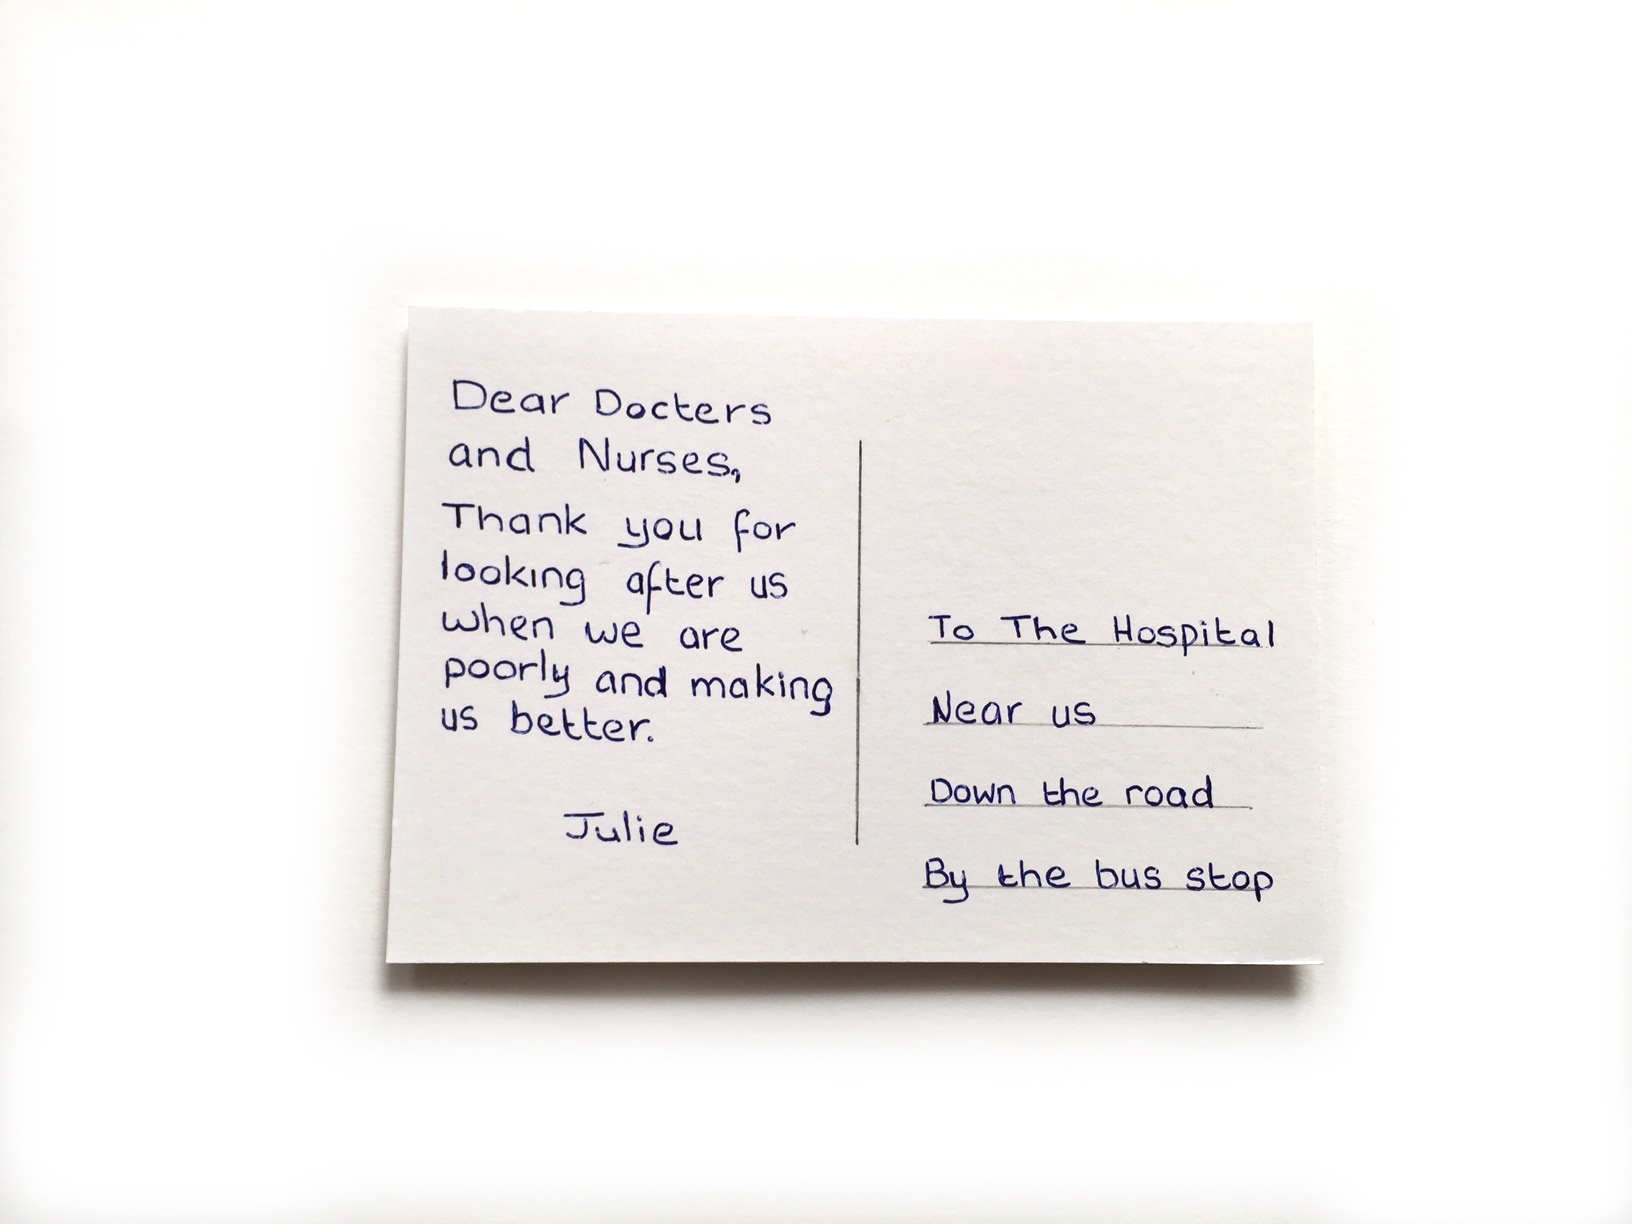 Dear Docters
and Nurses,
Thank you for
looking after us
when we are
poorly and making
us better.
Julie
To The Hospital
Near us
Down the road
By the bus stop